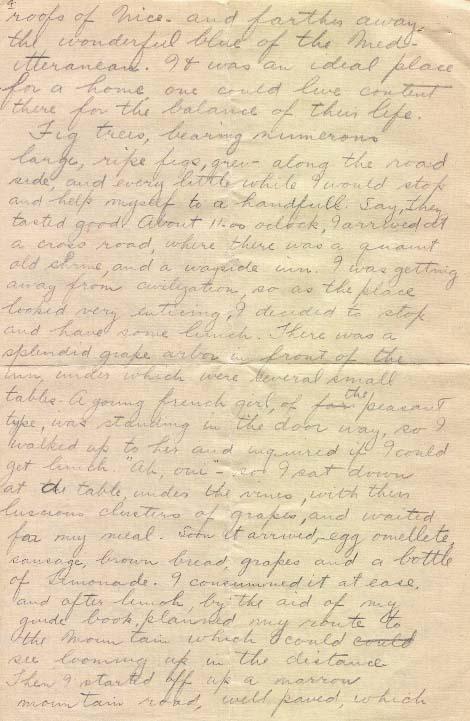 4
roofs of Nice. and farther away-
the wonderful blue of the Med-
itteranean. It was an ideal place
for a home, one could live content
there for the balance of their life.
Fig trees, bearing numerous
large, ripe figs, grew along the road
side, and every little while I would stop
and help myself to a handfull. Say, They
tasted good. About 11.00 oclock, I arrived at
a cross road, where there was a quaint
old shrine, and a wayside inn. I was getting
away from civilization, so as the place
looked very enticing, I decided to stop
and have some lunch. There was a
splendid grape arbor in front of the
inn, under which were several small
tables- A young french girl, of the peasant
type, was standing in the door way, so I
walked up to her and inquired if I could
get lunch. "Ah, oui"- so I sat down
at the table, under the vines, with their
luscious clusters of grapes, and waited
for my meal. Soon it arrived,- egg omellete,
sausage, brown bread, grapes and a bottle
of Limonade. I consummed it at ease,
and after lunch, by the aid of my
guide book, planned my route to
the mountain which I could could
see looming up in the distance
Then I started off up a narrow
mountain road, well paved, which